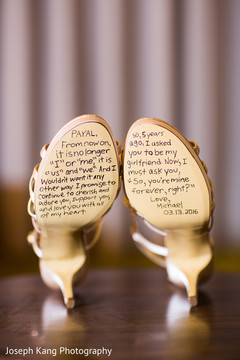 PAYAL,
From now on,
it is no longer
"I" or "me," it is
"us" and "we." And I
wouldn't want it any
other way. I promise to
continue to cherish and
adore you, support you,
and love you with all
of my heart.
So, 5 years
ago, I asked
you to be my
girlfriend. Now, I
must ask you,
"So, you're mine
forever, right?"
Love,
Michael
03.13.2016
Joseph Kang Photography